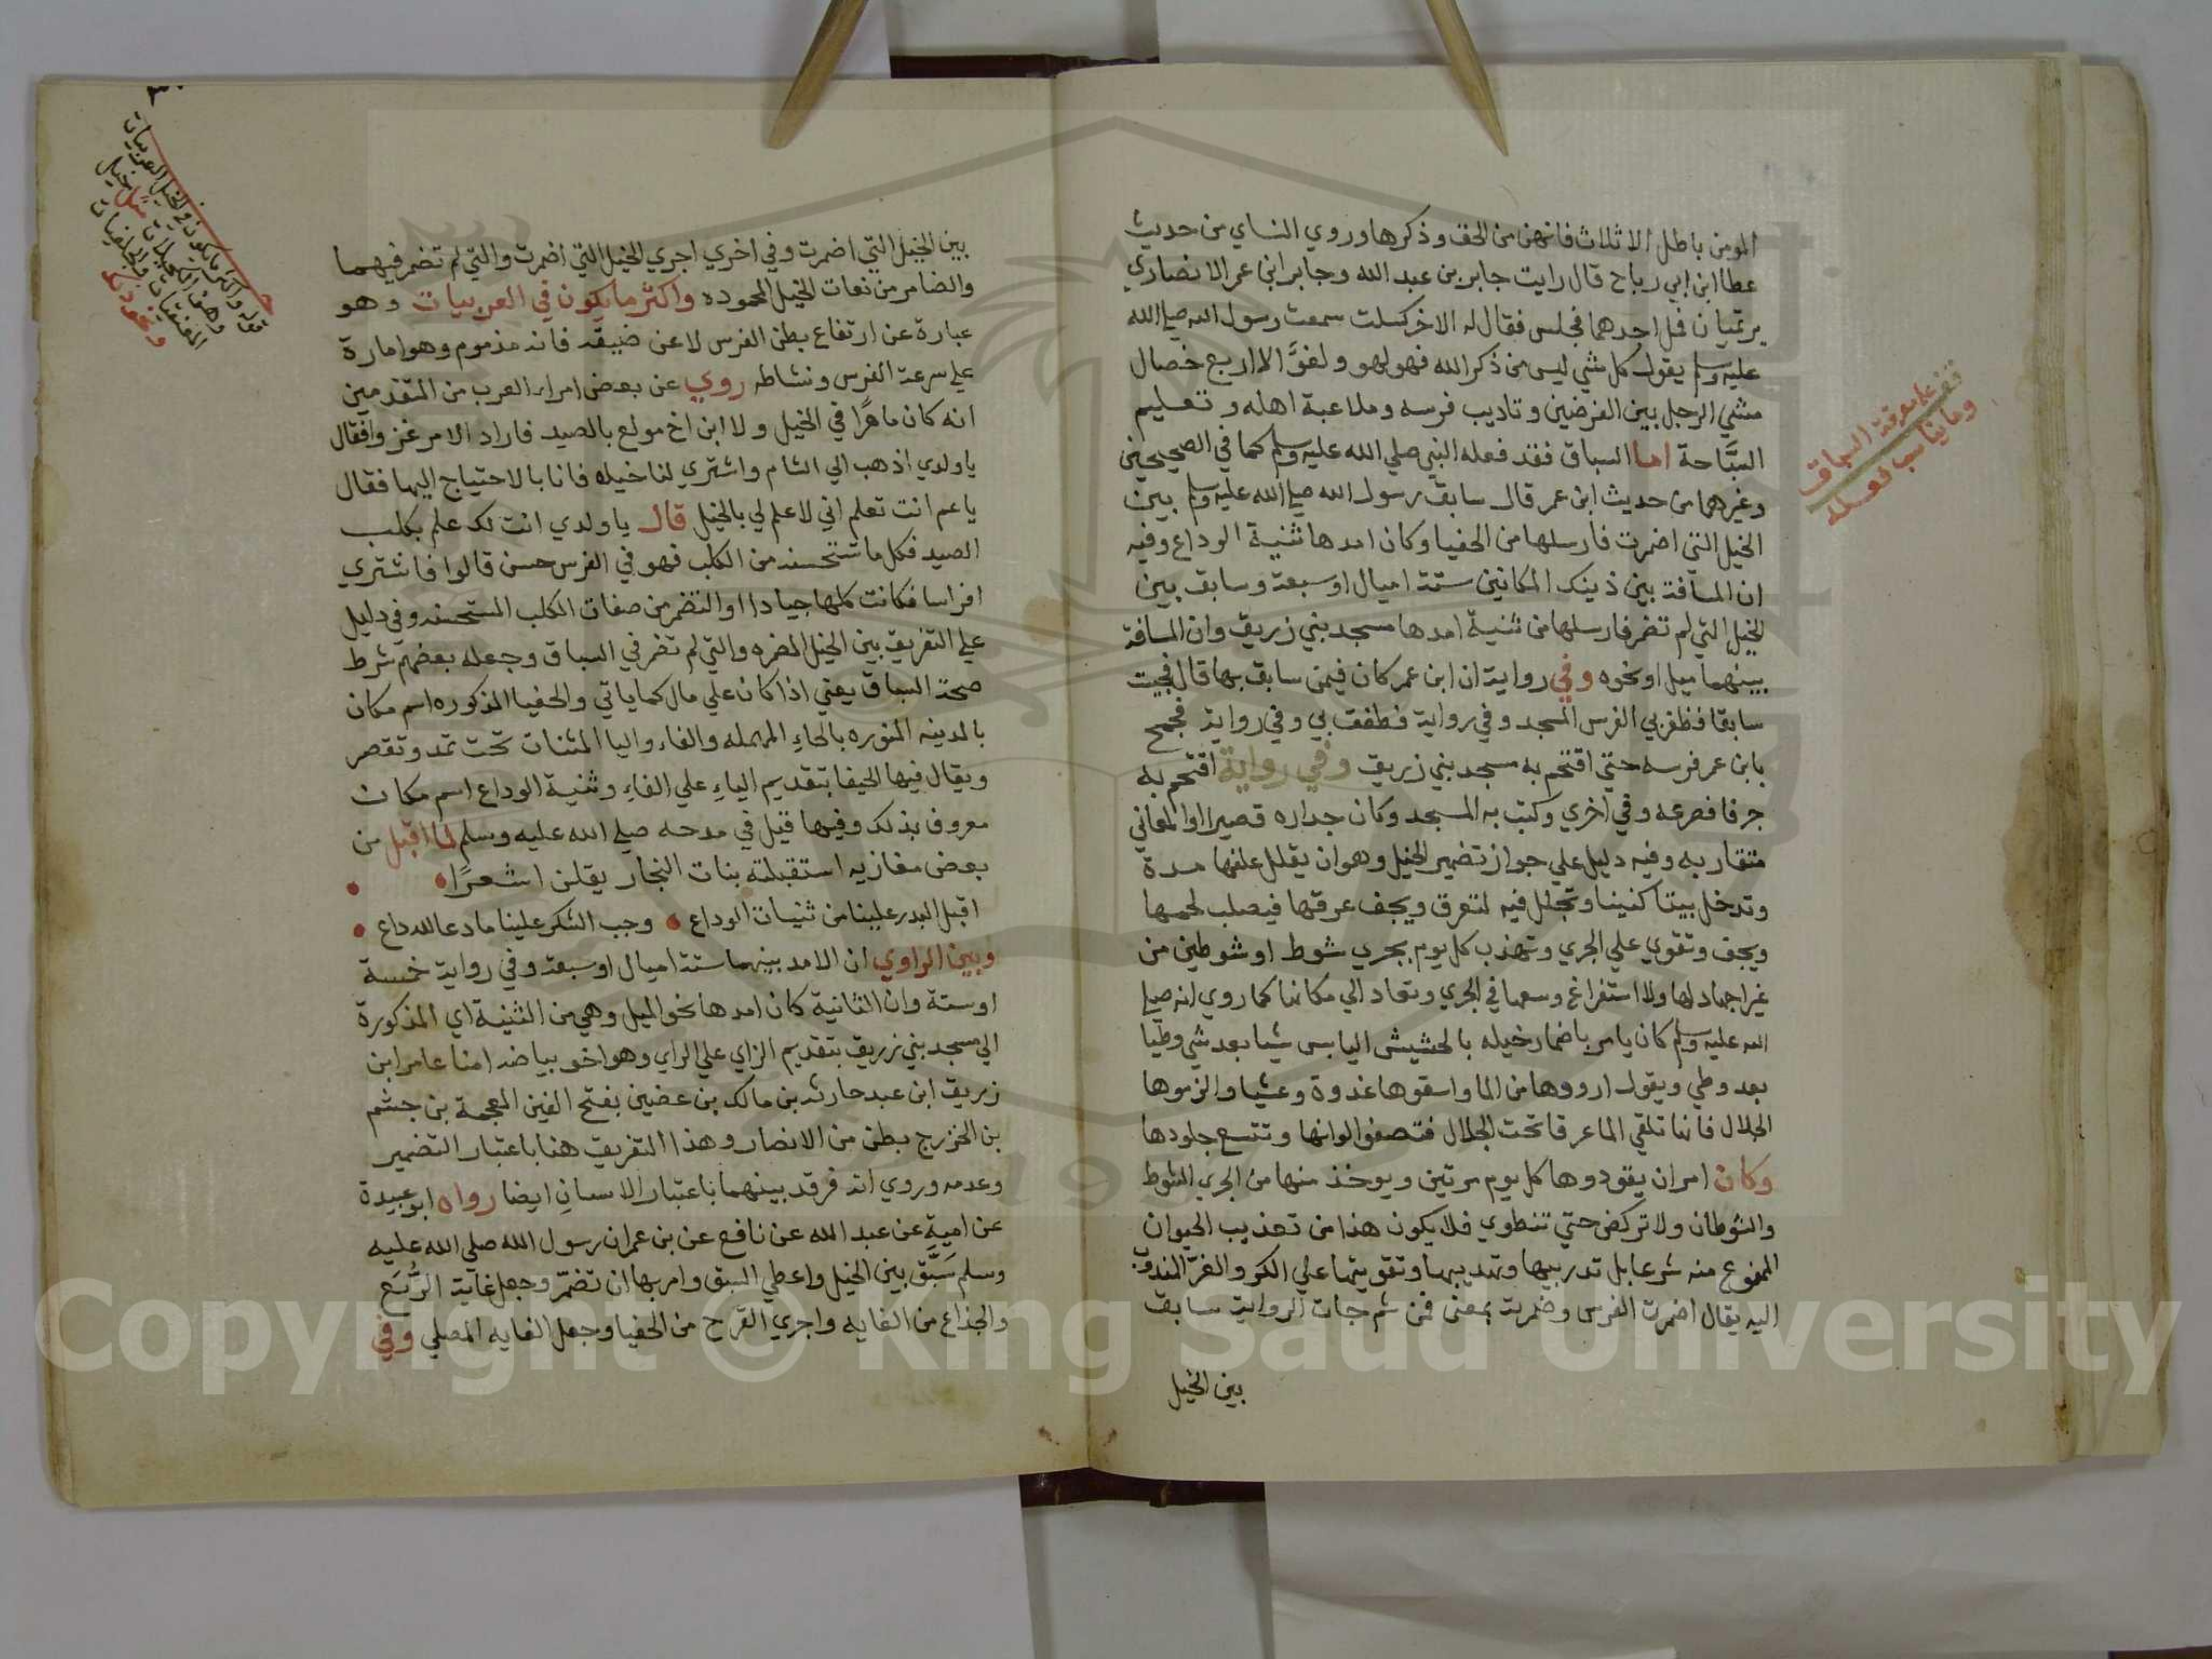 المومن باطل الا ثلاث فانهن من الحق وذكرها وروي النساي من حديث
عطا ابن ابي رباح قال رايت جابر بن عبد الله وجابر ابن عمر الانصاري
يرتميان فمل احدهما فجلس فقال له الاخر كسلت سمعت رسول الله صلي الله
عليه وسلم يقول كل شي ليس من ذكر الله فهو لهو ولغوٌ الا اربع خصال
مشي الرجل بين الغرضين وتاديب فرسه وملاعبة اهله وتعليم
السَّباحة اما السباق فقد فعله النبي صلي الله عليه وسلم كما في الصحيحين
وغيرهما من حديث ابن عمر قال سابق رسول الله صلي الله عليه وسلم بين
الخيل التي اضمرت فارسلها من الحفيا وكان امدها ثنية الوداع وفيه
ان المسافة بين ذينك المكانين ستة اميال او سبعة وسابق بين
الخيل التي لم تضمر فارسلها من ثنية امدها مسجد بني زريق وان المسافة
بينهما ميل او نحوه وفي رواية ان ابن عمر كان فيمن سابق بها قال فجيت
سابقا فظفر بي الفرس المسجد وفي رواية فطفف بي وفي رواية فجمح
بابن عمر فرسه حتي اقتحم به مسجد بني زريق وفي رواية اقتحم به
جرفا فصرعه وفي اخري وكتب به المسجد وكان جداره قصيرا او المعاني
متقاربه وفيه دليل علي جواز تضمير الخيل وهو ان يقلل علفها مدة
وتدخل بيتا كنينا وتجلل فيه لتعرق ويجف عرقها فيصلب لحمها
ويجف وتقوي علي الجري وتهذب كل يوم بجري شوط او شوطين من
غير اجهاد لها ولا استفراغ وسعها في الجري وتعاد الي مكانها كما روي انه صلي
الله عليه وسلم كان يامر باضمار خيله بالحشيش اليابس شيا بعد شي وطيا
بعد وطي ويقول ارووها من الما واسقوها غدوة وعشيا والزموها
الجلال فانها تلقي الما عرقا تحت الجلال فتصفوا الوانها وتتسع جلودها
وكان امر ان يقودوها كل يوم مرتين ويوخذ منها من الجري الشوط
والشوطان ولا تركض حتي تنطوي فلا يكون هذا من تعذيب الحيوان
الممنوع منه شرعا بل تدريبها وتهديبها وتقويتها علي الكر والفرّ المندوب
اليه يقال اضمرت الفرس وضمرته بمعنى فمن ثم جات الرواية سابق
بين الخيل
وما يناسب فعله
بين الخيل التي اضمرت وفي اخري اجري الخيل التي اضمرت والتي لم تضمر فيهما
والضامر من نعات الخيل المحموده واكثر ما يكون في العربيات وهو
عبارة عن ارتفاع بطن الفرس لا عن ضيقه فانه مذموم وهو امارة
علي سرعة الفرس ونشاطه روي عن بعض امراء العرب من المتقدمين
انه كان ماهرًا في الخيل ولا ابن اخ مولع بالصيد فاراد الامر غزوا فقال
يا ولدي اذهب الي الشام واشتري لنا خيلا فانا بالاحتياج اليها فقال
يا عم انت تعلم اني لا علم لي بالخيل قال يا ولدي انت لك علم بكلب
الصيد فكل ما تستحسنه من الكلب فهو في الفرس حسن قالوا فاشتري
افراسا فكانت كلها جيادا او التضمر من صفات الكلب المستحسنه وفي دليل
علي التفريق بين الخيل المضمره والتي لم تضمر في السباق وجعله بعضهم شرط
صحة السباق يعني اذا كان علي مال كما ياتي والحفيا المذكوره اسم مكان
بالمدينه المنوره بالحاءِ المهمله والفاء واليا المثنات تحت تمد وتقصر
ويقال فيها الحيفا بتقديم الياءِ علي الفاءِ وثنية الوداع اسم مكان
معروف بذلك وفيها قيل في مدحه صلي الله عليه وسلم لما اقبل من
بعض مغازيه استقبلته بنات النجار يقلن اشعرًا
اقبل البدر علينا من ثنيات الوداع وجب الشكر علينا ما دعا لله داع
وبين الراوي ان الامد بينهما ستة اميال او سبعة وفي رواية خمسة
او ستة وان الثانية كان امدها نحو الميل وهي من الثنية اي المذكورة
الي مسجد بني زريق بتقديم الزاي علي الراي وهو اخو بياضه امنا عامر ابن
زريق ابن عبد حارثه بن مالك بن غضين بفتح الغين المعجمة بن جشم
بن الخزرج بطن من الانصار وهذا التفريق هنا باعتبار التضمير
وعدمه وروي انه فرق بينهما باعتبار الاسنانِ ايضا رواه ابو عبيدة
عن اميةِ عن عبد الله عن نافع عن بن عمران رسول الله صلي الله عليه
وسلم سَبَّق بين الخيل واعطي السبق وامر بها ان تضمّر وجعل غاية الرُّبَع
والجذاع من الغايه واجري القرح من الحفيا وجعل الغايه المصلي وفي
قوله واكثر ما يكون في الخيل العربيات
Copyright © King Saud University